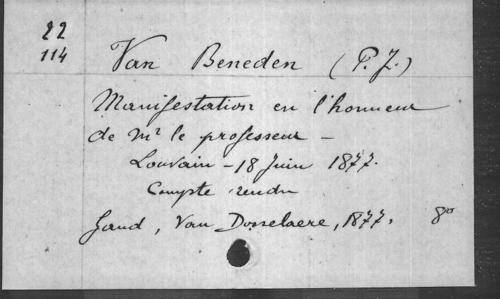 22
114
Van Beneden (P. J.)
Manifestation en l'honneur
de Mr le professeur —
Louvain — 18 Juin 1877.
Compte rendu
Gand, Van Dosselaere, 1877. 8o